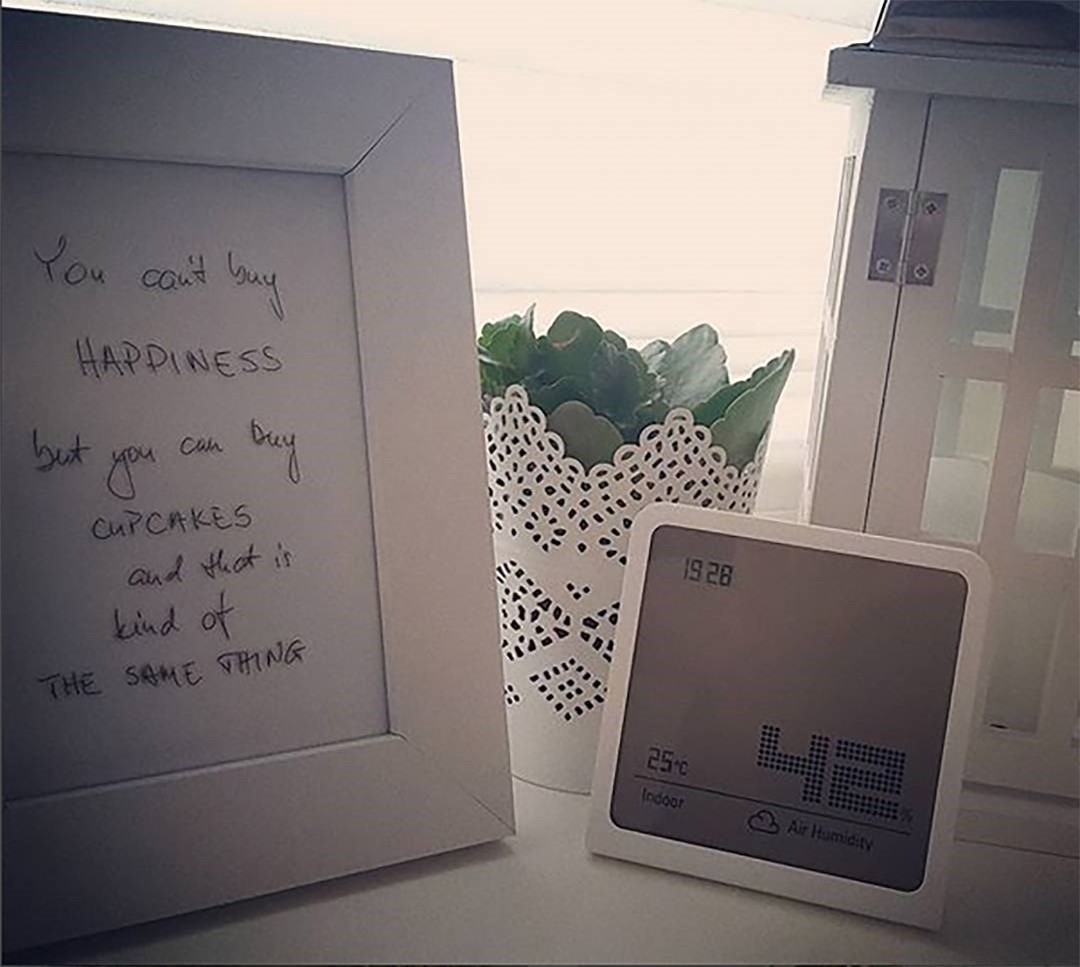 You can't buy
HAPPINESS
but you can buy
CUPCAKES
and that is
kind of
THE SAME THING
19 28
25°C
42%
Indoor
Air Humidity